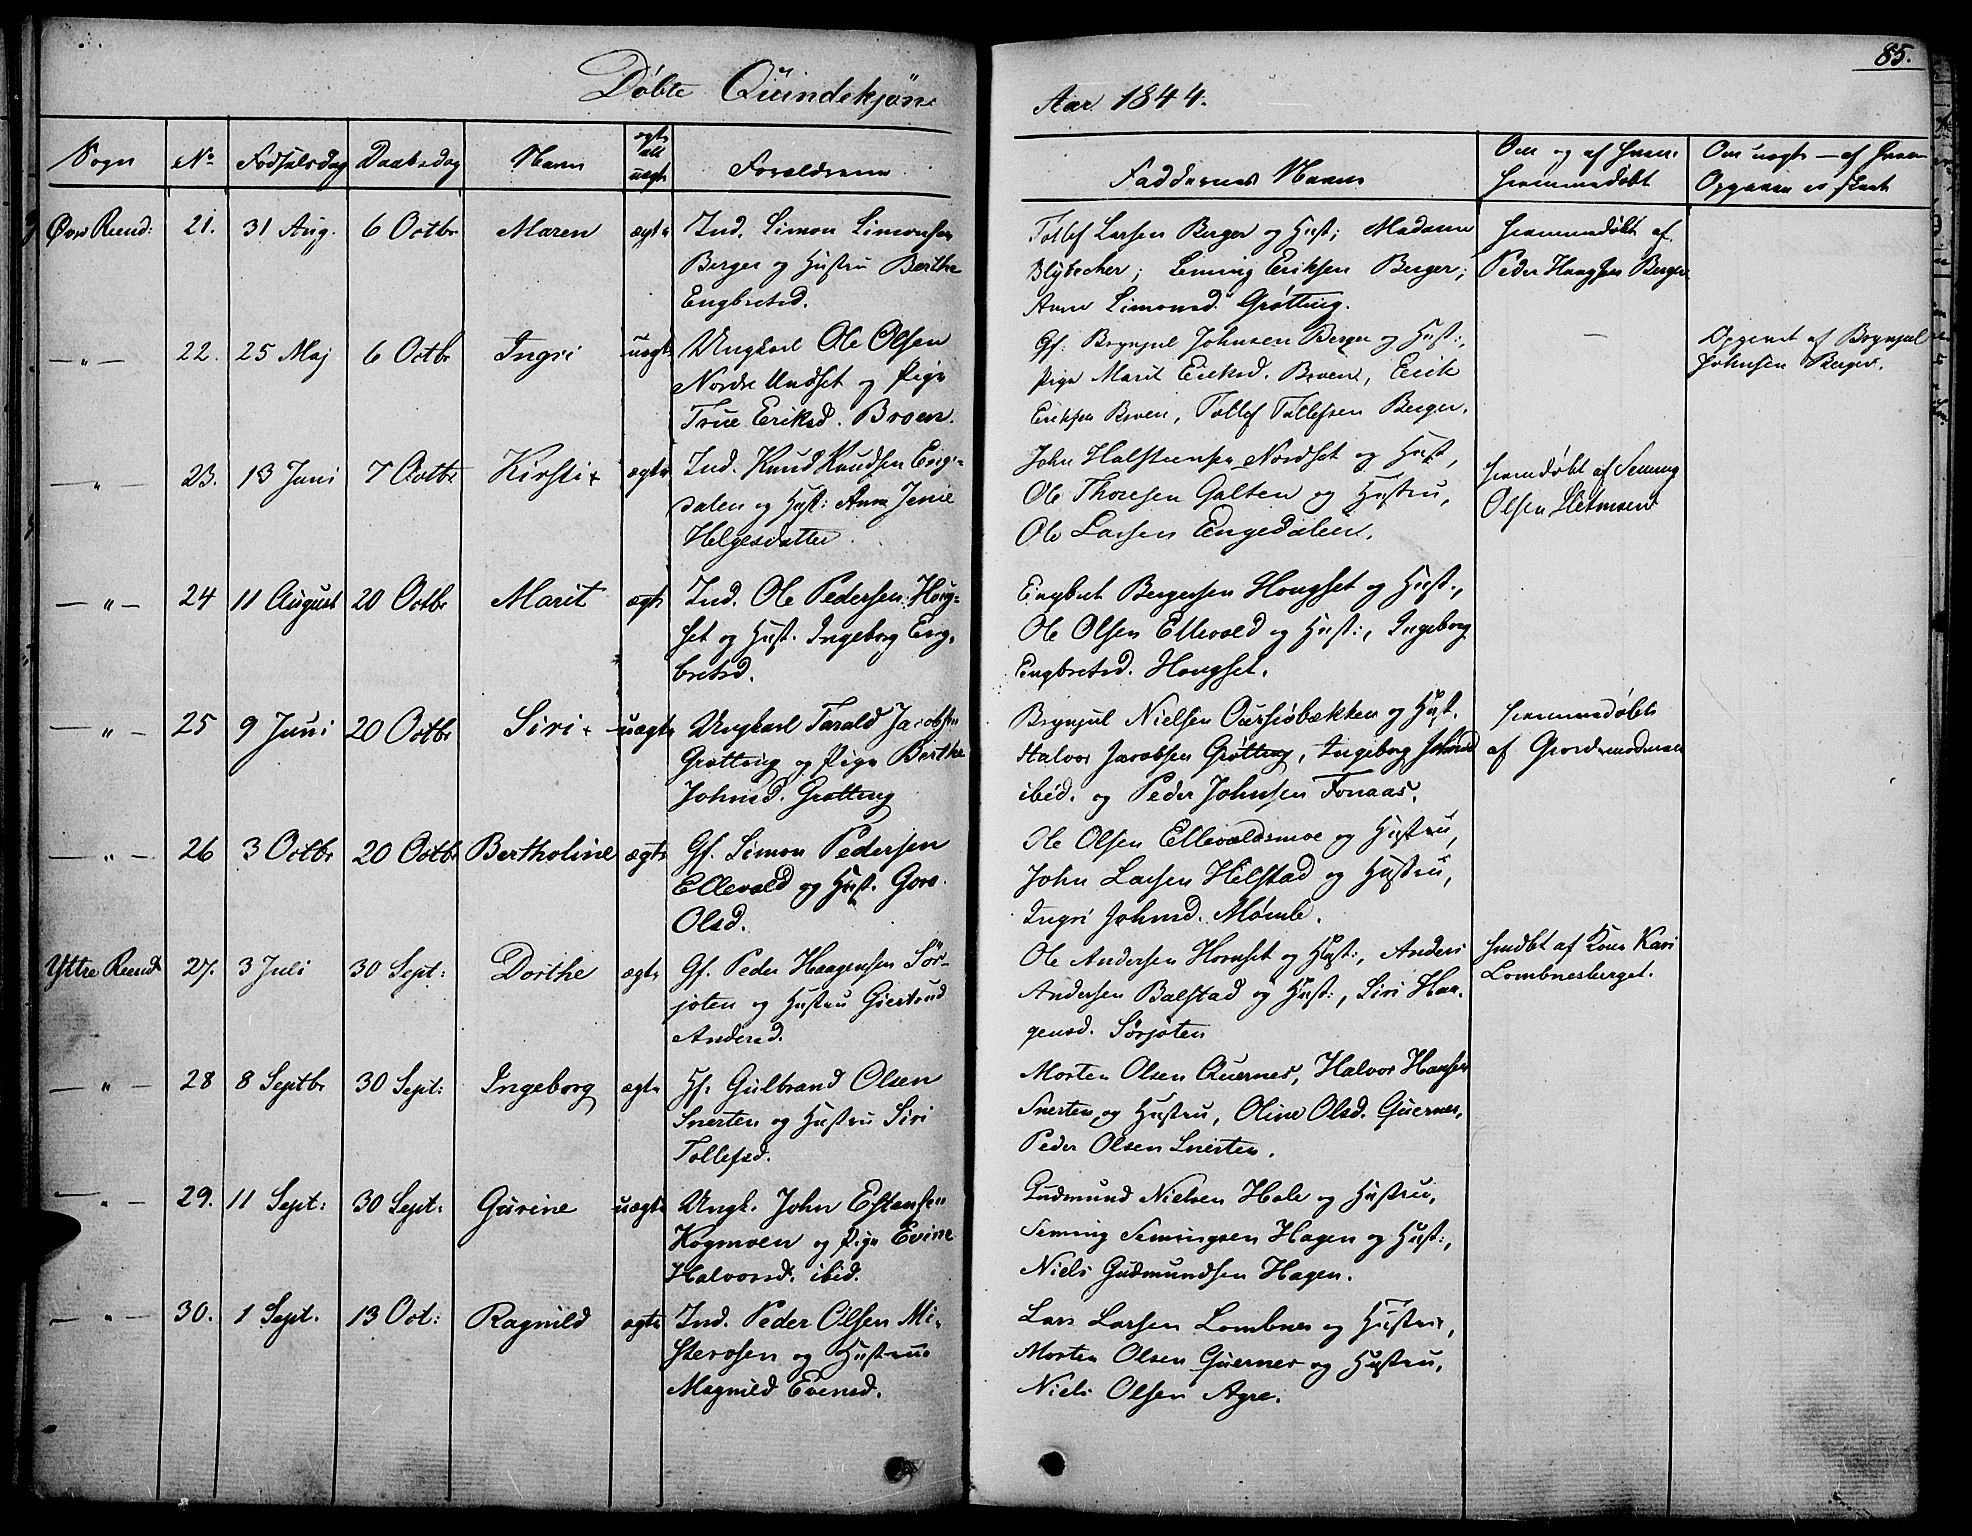 85.
Døbte Quindekjøn
Aar 1844.
Sogn
No
Fødselsdag
Daabsdag
Navn
ægte
ell
uægte
Forældrene
Faddernes Navne
Om og af hvem
hjemmedøbt
Om uægte — af hvem
Opgaven er skeet
Øvre Rend: 21. 31 Aug. 6 Octbr Maren ægte
Ind. Simon Simonsen
Berger og Hustru Berthe
Engbretsd.
Tollef Larsen Berger og Hust; Madame
Blybecher; Seming Eriksen Berger;
Anne Simonsd. Grøtting.
hjemmedøbt af
Peder Haagsen Berger
— " — 22. 25 Maj 6 Octbr Ingri uægte
Ungkarl Ole Olsen
Nordre Undset og Pige
True Eriksd. Broen.
Gf. Brynjul Johnsen Berger og Hust:,
Pige Marit Eriksd. Broen, Erik
Eriksen Broen, Tollef Tollefsen Berger.
—
Opgivet af Brynjul
Johnsen Berger.
— " — 23. 13 Juni 7 Octbr Kirsti + ægte
Ind. Knud Knudsen Enge-
dalen og Hust: Anne Jenie
Helgesdatter
John Halsteensen Nordset og Hust,
Ole Thoresen Galten og Hustru,
Ole Larsen Engedalen.
hjemdøbt af Seming
Olsen Sletmoen
— " — 24 11 August 20 Octbr Marit ægte
Ind. Ole Pedersen Houg-
set og Hust. Ingeborg Eng-
bretsd.
Engbret Bergersen Hougset og Hust:,
Ole Olsen Ellevold og Hust:, Ingeborg
Engbretsd. Hougset.
— " — 25 9 Juni 20 Octbr Siri + uægte
Ungkarl Tarald Jacobsen
Grøtting og Pige Berthe
Johnsd. Grøtting
Brynjul Nielsen Oursiøbækken og Hust.
Halvor Jacobsen Grøtting, Ingeborg Johnsd
ibid. og Peder Johnsen Fonaas.
hjemmedøbt
af Giordemoderen
— " — 26 3 Octbr 20 Octbr Bertholine ægte
Gf. Simon Pedersen
Ellevold og Hust. Goro
Olsd.
Ole Olsen Ellevoldsmoe og Hustru,
John Larsen Helstad og Hustru,
Ingri Johnsd. Mømle.
Yttre Rend: 27. 3 Juli 30 Sept: Dorthe ægte
Gf. Peder Haagensen Sör-
joten og Hustru Giertrud
Andersd.
Ole Andersen Hornset og Hust:, Anders
Andersen Balstad og Hust:, Siri Haa-
gensd. Sörjoten
hmdbt af Kone Kari
Lombnesberget.
— " — 28 8 Septbr 30 Sept: Ingeborg ægte
Gf. Gulbrand Olsen
Snerten og Hustru Siri
Tollefsd.
Morten Olsen Quernes, Halvor Hansen
Snerten og Hustru, Oline Olsd. Quernes,
Peder Olsen Snerten.
— " — 29. 11 Sept: 30 Sept: Gurine uægte
Ungk. John Estensen
Kogmoen og Pige Evine
Halvorsd. ibid.
Gudmund Nielsen Hole og Hustru,
Seming Semingsen Hagen og Hust:,
Niels Gudmundsen Hagen.
— " — 30. 1 Sept. 13 Oct: Ragnild ægte
Ind. Peder Olsen Mi-
sterosen og Hustru
Magnild Evensd.
Lars Larsen Lombnes og Hustru,
Morten Olsen Quernes og Hustru,
Niels Olsen Agre.